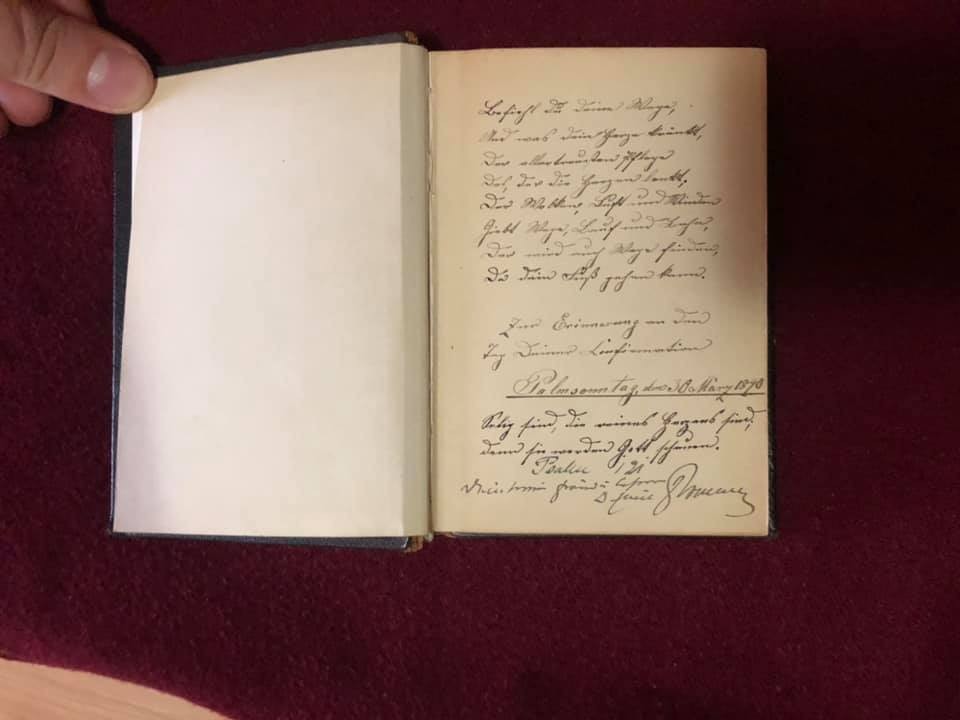 Befiehl Du Deine Wege,
Und was dein Herze kränkt,
Der allertreusten Pflege
Deß, der die Herzen lenkt;
Der Wolken, Luft und Winden
Giebt Wege, Lauf und Bahn,
Der wird auch Wege finden,
Da Dein Fuß gehen kann.
Zur Erinnerung an den
Tag Deiner Confirmation
Palmsonntag, den 30. März 1890
Selig sind, die reines Herzens sind,
denn sie werden Gott schauen.
Psalm 121